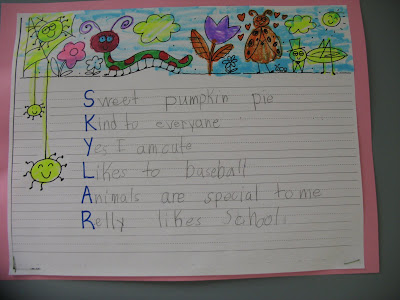 Sweet pumpkin pie
Kind to everyone
Yes I am cute
Likes to baseball
Animals are special to me
Relly likes School.